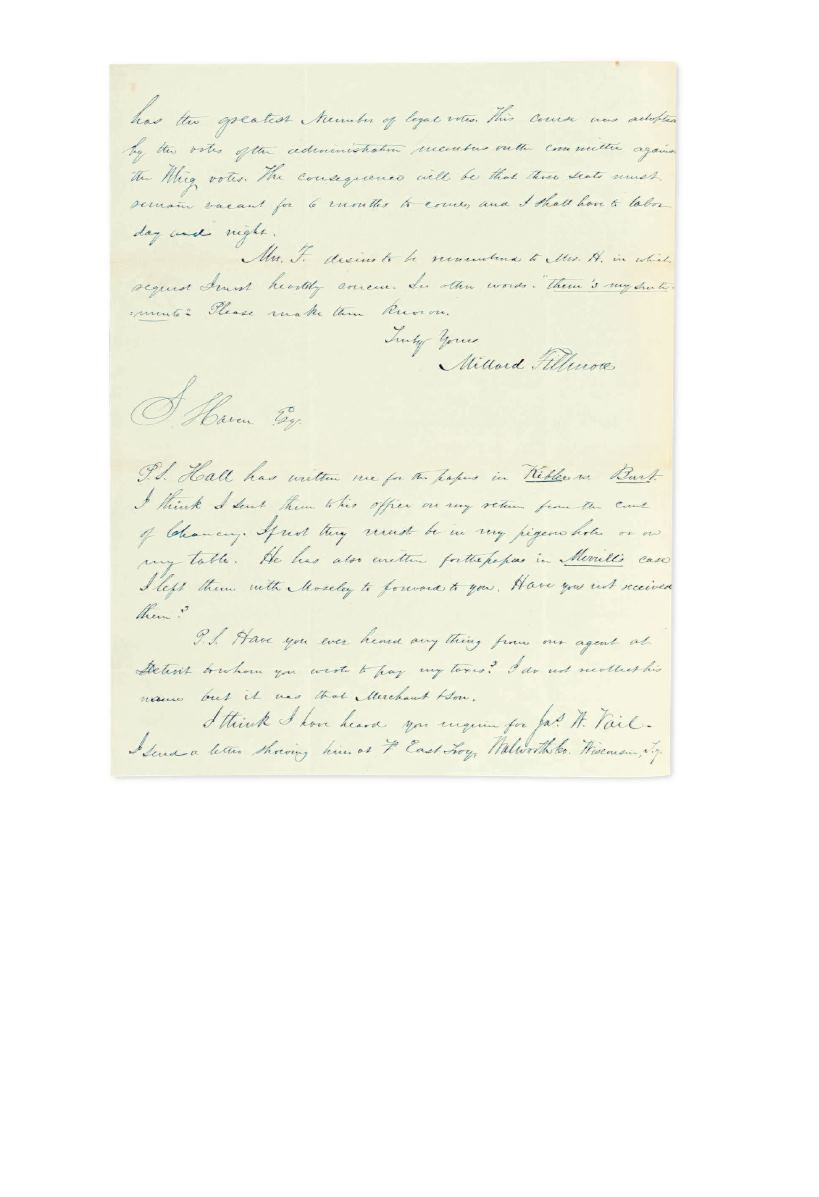 has the greatest Number of legal votes. This course was adopted
by the votes of the administration members on the committee against
the Whig votes. The consequence will be that these seats must
remain vacant for 6 months to come, and I shall have to labor
day and night.
Mrs. F. desires to be remembered to Mrs. H. in which
request I most heartily concur. In other words "them's my senti-
=ments" Please make them known.
Truly Yours
Millard Fillmore
S. Haven Esq.
P.S. Hall has written me for the papers in Kibbe vs. Burt.
I think I sent them to his office on my return from the court
of Chancery. If not they must be in my pigeon hole or on
my table. He has also written for the papers in Merrill's case
I left them with Moseley to forward to you. Have you not received
them?
P.S. Have you ever heard any thing from our agent at
Detroit to whom you wrote to pay my taxes? I do not recollect his
name but it was that Merchant & Son.
I think I have heard you inquire for Jas. W. Vail.
I send a letter showing him at East Troy, Walworth Co. Wisconsin, Ty.